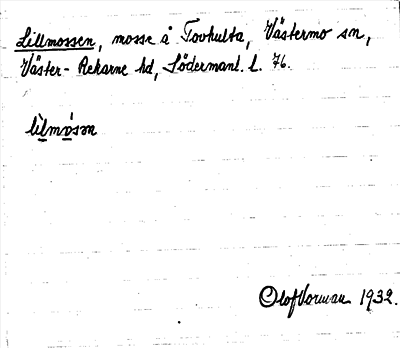 Lillmossen, mosse å Tovhulta, Västermo sn,
Väster-Rekarne hd, Södermanl. l. 76.
lìlmòsən
Olof Vorman 1932.